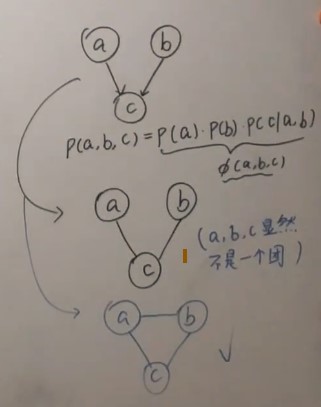 a b
c
P(a,b,c) = P(a)·P(b)·P(c|a,b)
φ(a,b,c)
a b
c
(a,b,c显然
不是一个团)
a b
c
✓